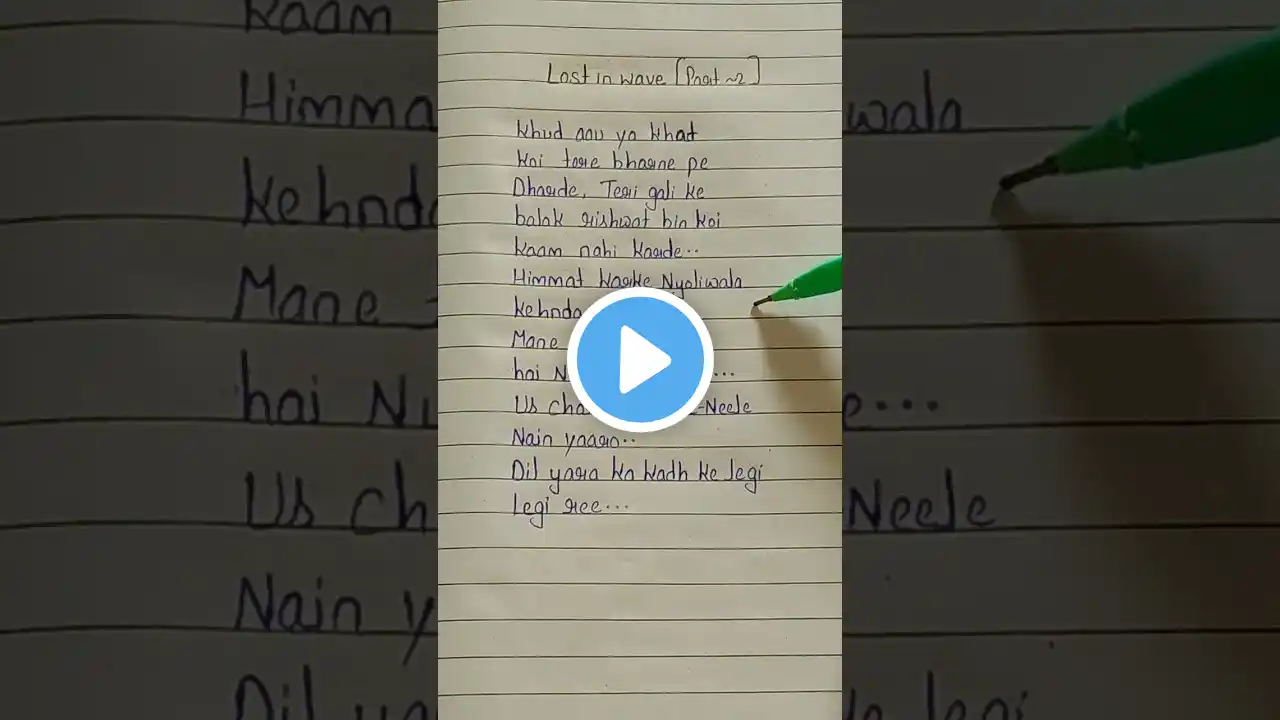 Lost in wave [Part ~2]
Khud aau ya khat
koi tore bharne pe
Dharde, Teri gali ke
balak rishwat bin koi
kaam nahi karde..
Himmat karke Nyoliwala
kehnda
Mane
hai
Us Neele
Nain yaaro..
Dil yara ka kadh ke legi
legi ree...